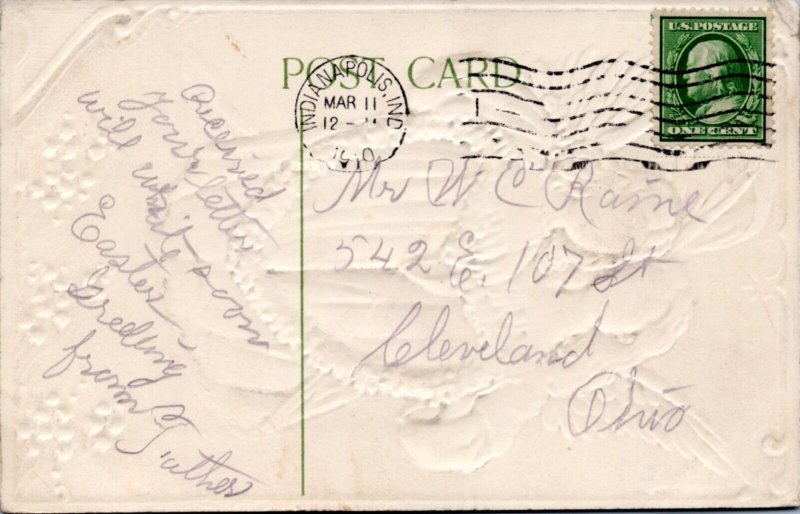 POST CARD
U.S. POSTAGE
ONE CENT
INDIANAPOLIS, IND
MAR 11
12 - M
1910
received
Your letter
will white soon
Easter
Greding
from Father
Mr W C Raine
542 E. 107 St
Cleveland
Ohio